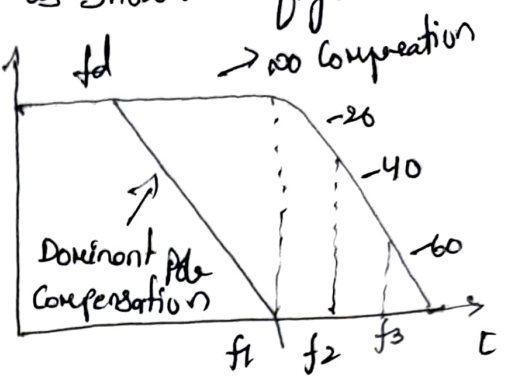 is shown
fd
→ no Compensation
-20
-40
-60
Dominant Pole
Compensation
f1 f2 f3